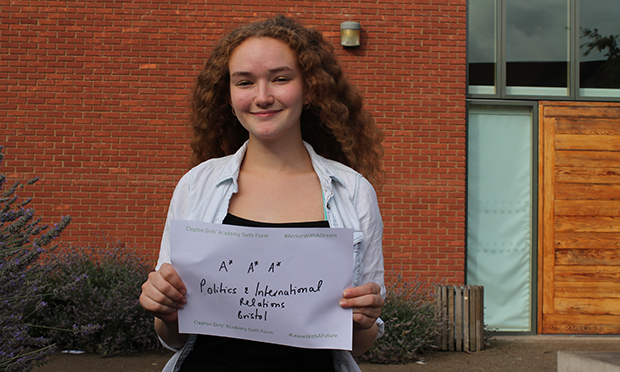 Clapton Girls' Academy Sixth Form #ArriveWithADream
A* A* A*
Politics & International
Relations
Bristol
Clapton Girls' Academy Sixth Form #LeaveWithAFuture